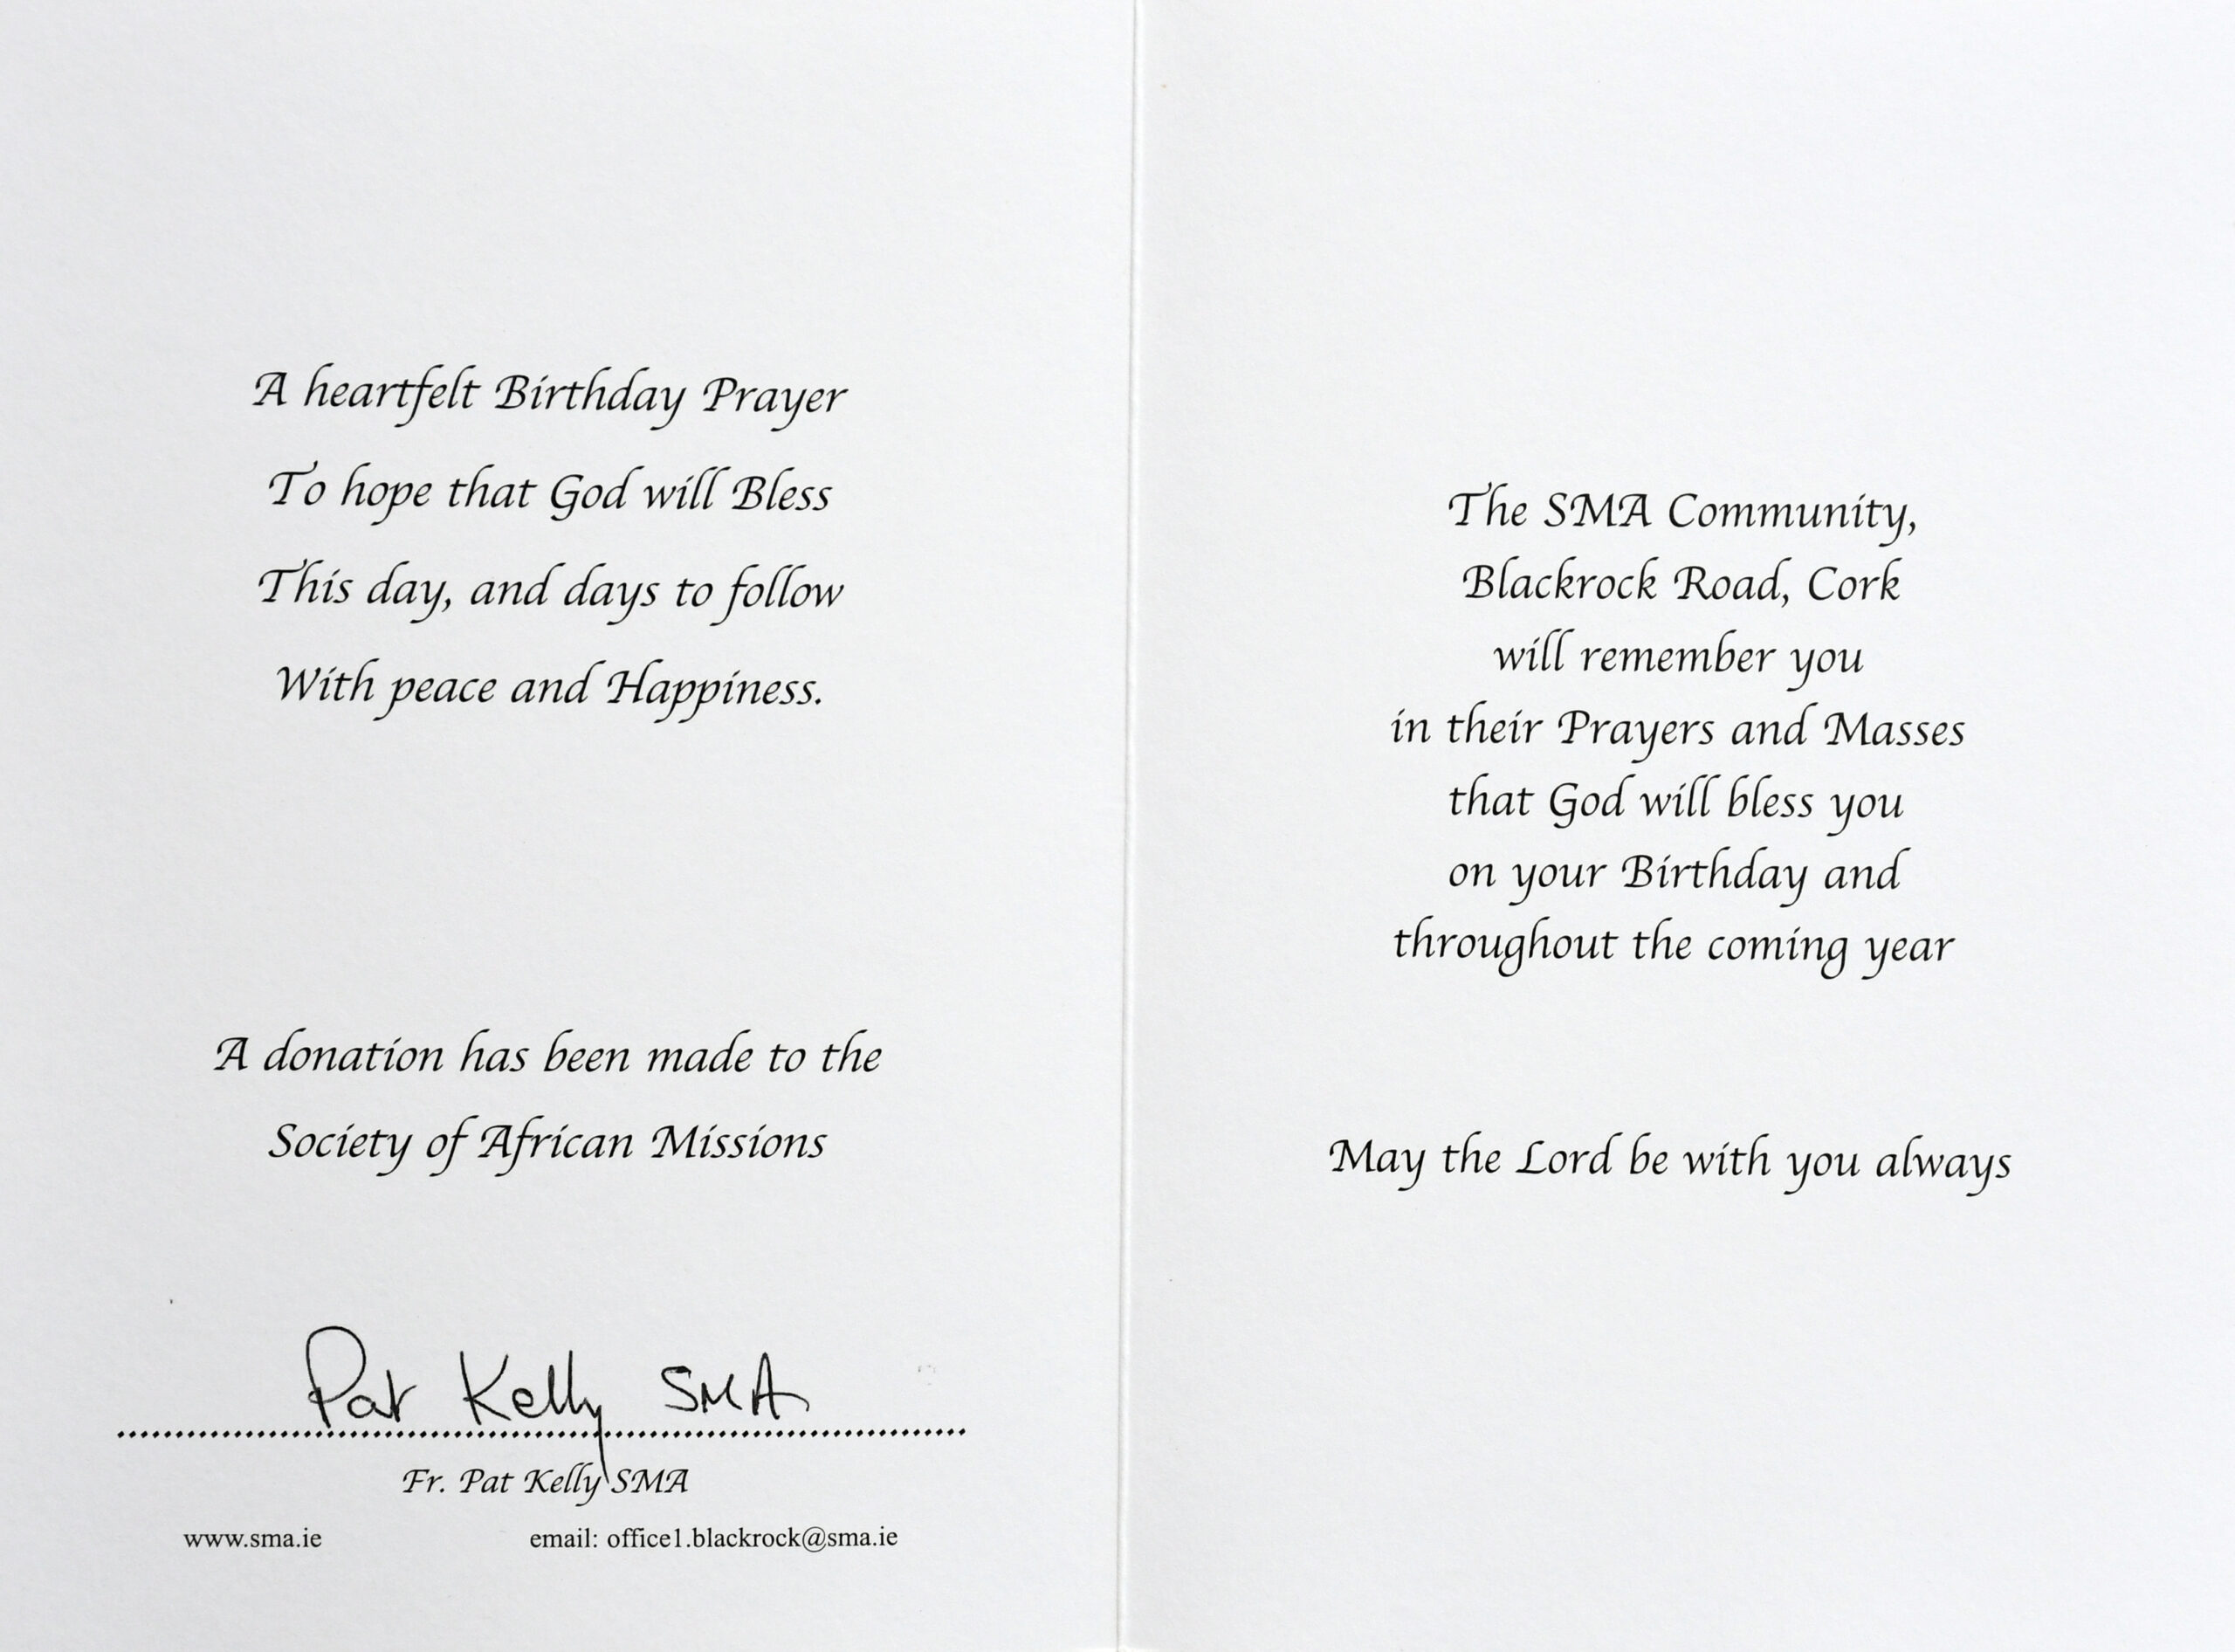 A heartfelt Birthday Prayer
To hope that God will Bless
This day, and days to follow
With peace and Happiness.
A donation has been made to the
Society of African Missions
Pat Kelly SMA
Fr. Pat Kelly SMA
www.sma.ie email: office1.blackrock@sma.ie
The SMA Community,
Blackrock Road, Cork
will remember you
in their Prayers and Masses
that God will bless you
on your Birthday and
throughout the coming year
May the Lord be with you always